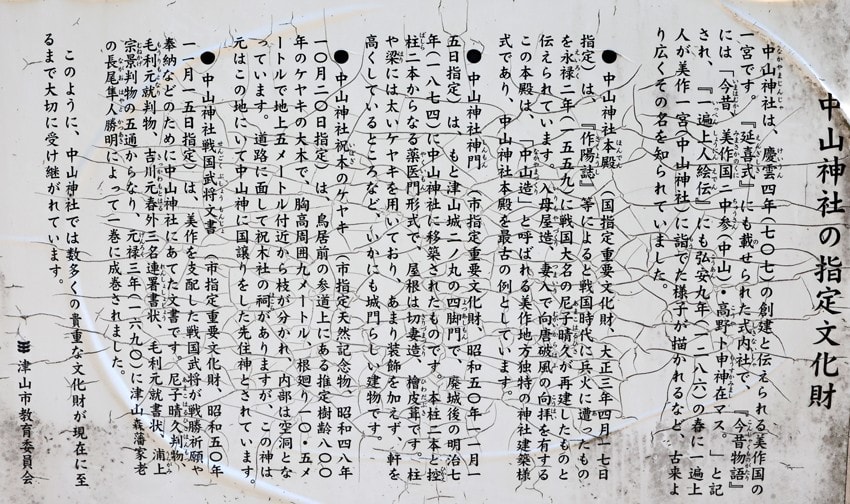 中山神社の指定文化財
中山神社は、慶雲四年(七〇七)の創建と伝えられる美作国の
一宮です。『延喜式』にも載せられた式内社で、『今昔物語』
には「今昔、美作国二中参(中山)・高野ト申神在マス。」と記
され、『一遍上人絵伝』にも弘安九年(一二八六)の春に一遍上
人が美作一宮(中山神社)に詣でた様子が描かれるなど、古来よ
り広くその名を知られていました。
●中山神社本殿 (国指定重要文化財、大正三年四月一七日
指定)は、『作陽誌』等によると戦国時代に兵火に遭ったもの
を永禄二年(一五五九)に戦国大名の尼子晴久が再建したものと
伝えられています。入母屋造、妻入で向唐破風の向拝を有する
この本殿は、「中山造」と呼ばれる美作地方独特の神社建築様
式であり、中山神社本殿を最古の例としています。
●中山神社神門 (市指定重要文化財、昭和五〇年一一月一
五日指定)は、もと津山城二ノ丸の四脚門で、廃城後の明治七
年(一八七四)に中山神社に移築されたものです。本柱二本と控
柱二本からなる薬医門形式で、屋根は切妻造、檜皮葺です。柱
や梁には太いケヤキを用いており、あまり装飾を加えず、軒を
高くしているところなど、いかにも城門らしい建物です。
●中山神社祝木のケヤキ (市指定天然記念物、昭和四八年
一〇月二〇日指定)は、鳥居前の参道上にある推定樹齢八〇〇
年のケヤキの大木で、胸高周囲九メートル、根廻り一〇・五メ
ートルで地上五メートル付近から枝が分かれ、内部は空洞とな
っています。道路に面して祝木社の祠がありますが、この神は
元はこの地にいて中山神に国譲りをした先住神とされています。
●中山神社戦国武将文書 (市指定重要文化財、昭和五〇年
一一月一五日指定)は、美作を支配した戦国武将が戦勝祈願や
奉納などのために中山神社にあてた文書です。尼子晴久判物、
毛利元就判物、吉川元春外三名連署書状、毛利元就書状、浦上
宗景判物の五通からなり、元禄三年(一六九〇)に津山森藩家老
の長尾隼人勝明によって一巻に成巻されました。
このように、中山神社では数多くの貴重な文化財が現在に至
るまで大切に受け継がれています。
津山市教育委員会